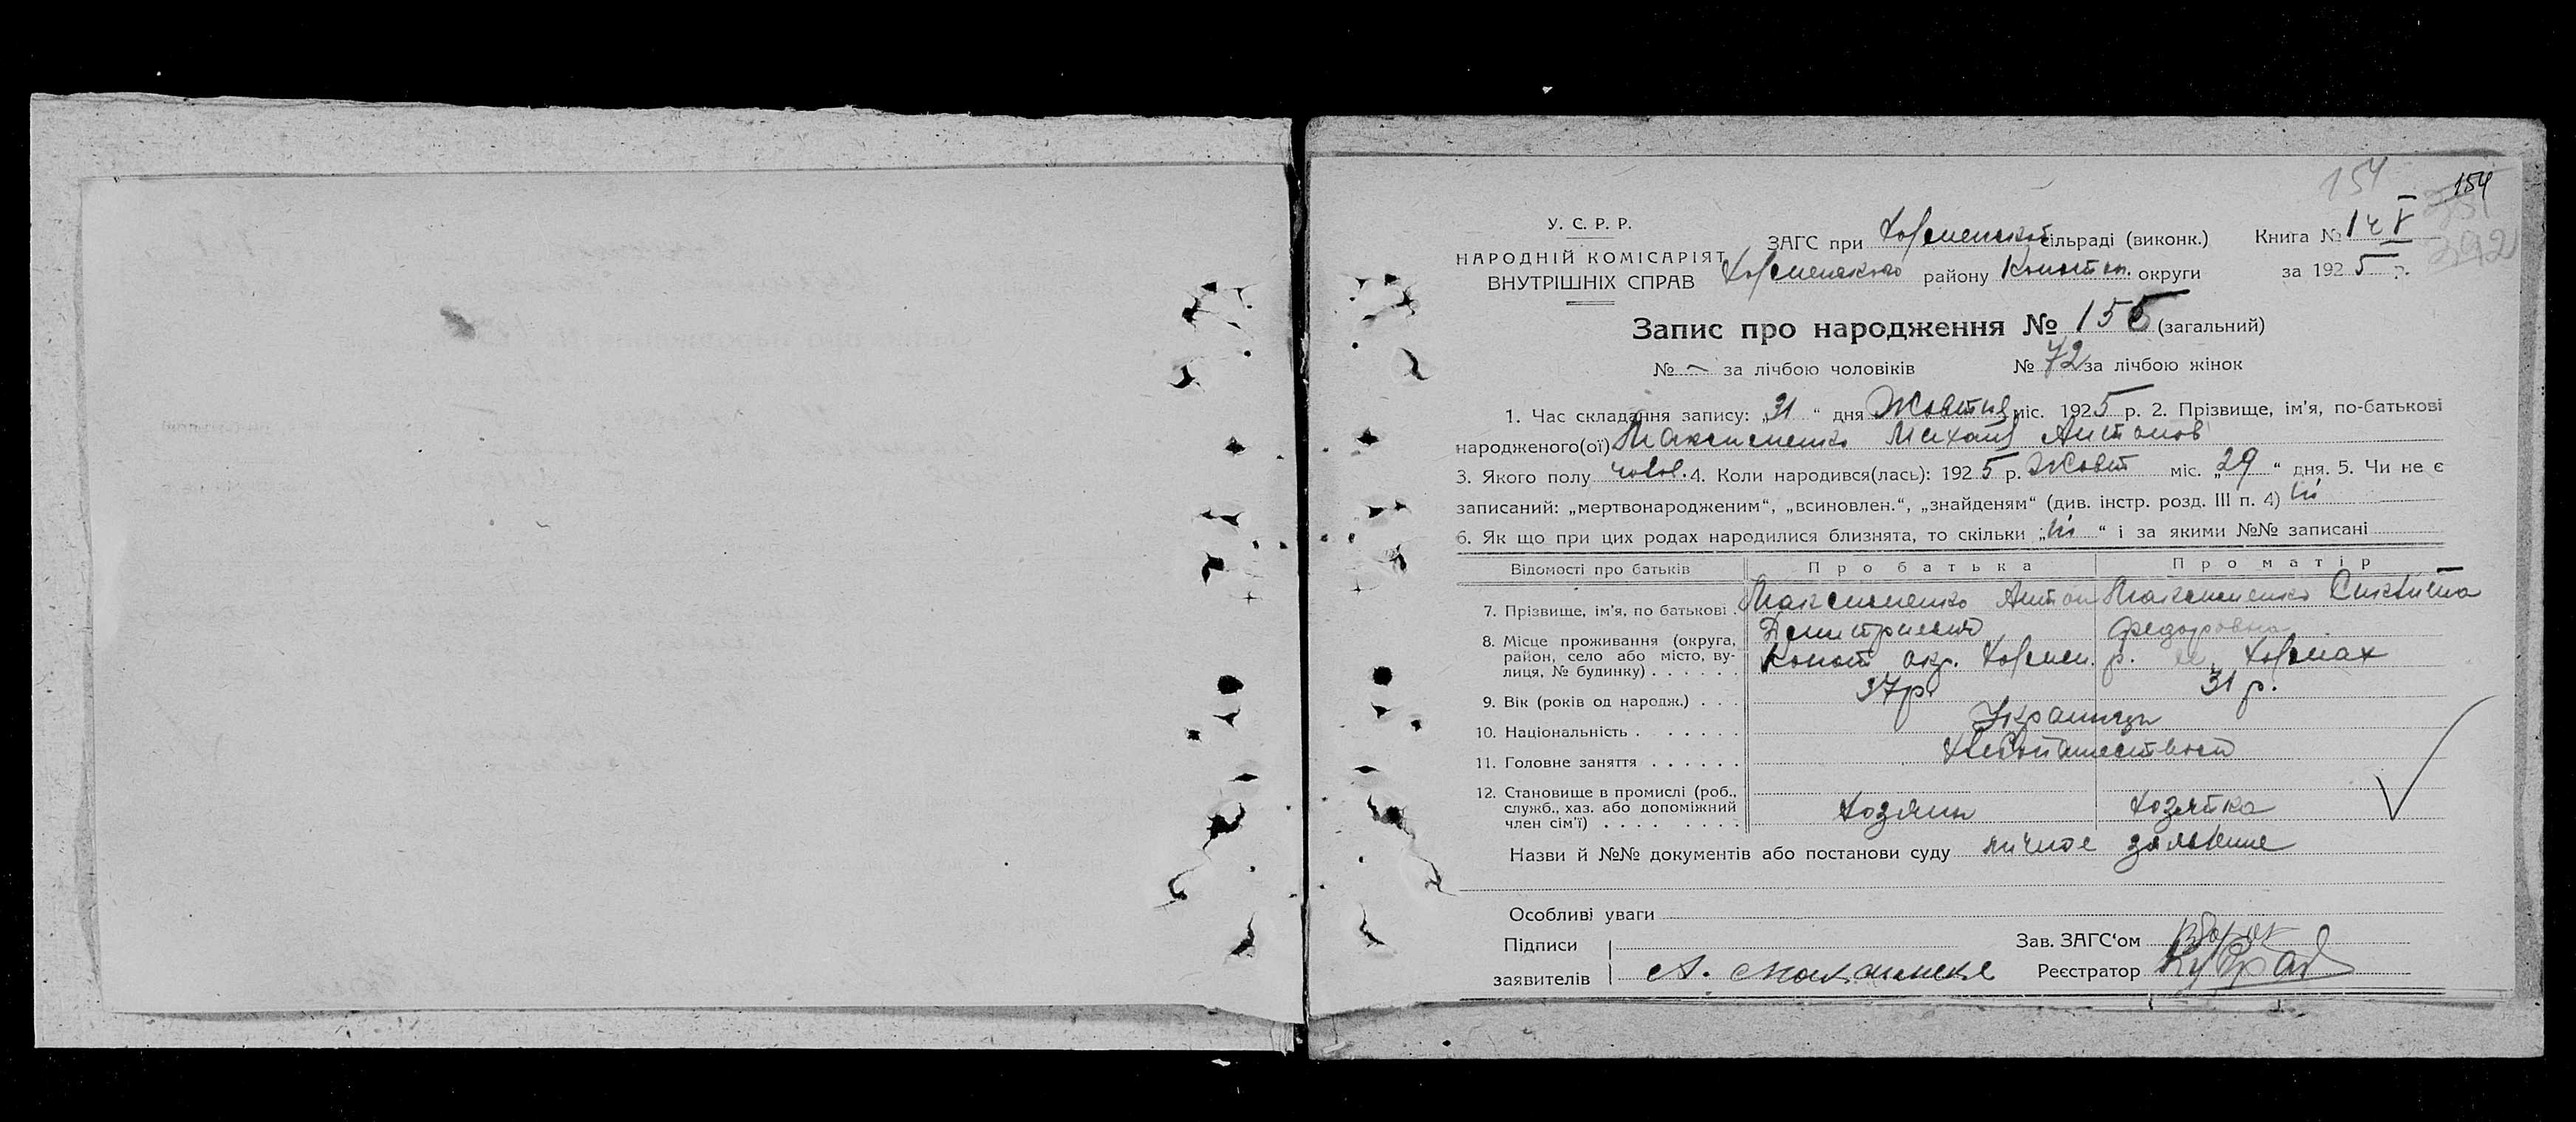 154
154
У. С. Р. Р.
НАРОДНІЙ КОМІСАРІЯТ
ВНУТРІШНІХ СПРАВ
ЗАГС при сільраді (виконк.) Книга №
району Конотоп. округи за 1925 р.
Запис про народження № 155 (загальний)
№ – за лічбою чоловіків № 72 за лічбою жінок
1. Час складання запису: „31“ дня Жовтня міс. 1925 р. 2. Прізвище, ім'я, по-батькові
народженого(ої) Максименко Михаил Антонов
3. Якого полу чолов. 4. Коли народився(лась): 1925 р. Жовт міс. „29“ дня. 5. Чи не є
записаний: „мертвонародженим“, „всиновлен.“, „знайденям“ (див. інстр. розд. III п. 4) ні
6. Як що при цих родах народилися близнята, то скільки „ні“ і за якими №№ записані
Відомості про батьків Про батька Про матір
7. Прізвище, ім'я, по батькові . Максименко Антон Максименко
Дмитриевич Федоровна
8. Місце проживання (округа, район, село або місто, вулиця, № будинку) . . . . . . Коноп окр. р.
9. Вік (років од народж.) . . . 37 р. 31 р.
10. Національність . . . . . . . Украинци
11. Головне заняття . . . . . .
12. Становище в промислі (роб., служб., хаз. або допоміжний член сім'ї) . . . . . . . . . Хозяин Хозяйка
Назви й №№ документів або постанови суду личное заявление
Особливі уваги
Підписи
заявителів А. Максименко
Зав. ЗАГС'ом
Реєстратор